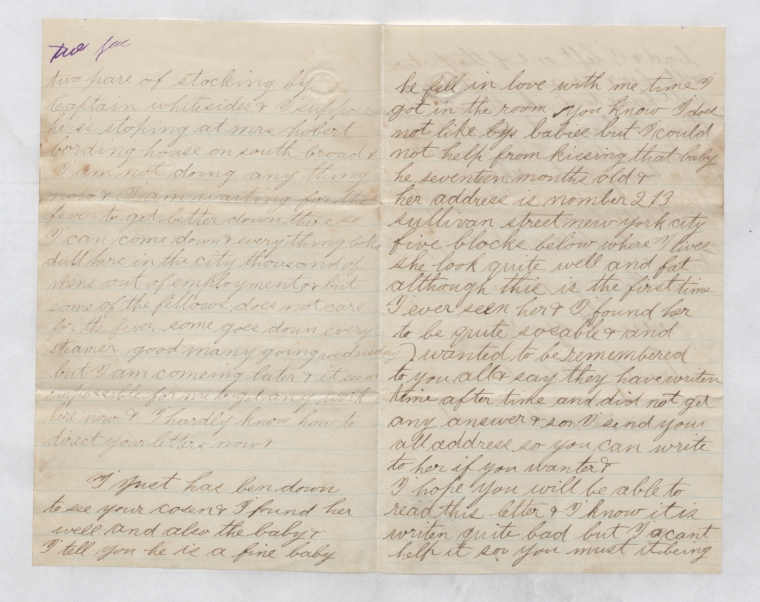 two pare of stocking by
Captain whitesides & I suppose
he is stoping at mrs hobert
bording house on south broad &
I am not doing any thing
now & I am waiting for the
fever to get better down there so
I can come down & everything looks
dull hare in the city thousand of
mens out of employment & but
some of the fellows does not care
for the fever some goes down every
steamer good many going wednesday
but I am comeing later & it seems
impossible for me to get any work
hire now & I hardly know how to
direct your letters now &
I just has ben down
to see your cosen & I found her
well and also the baby &
I tell you he is a fine baby
he fell in love with me time I
got in the room you know I does
not like babies but I could
not help from kissing that baby
he seventeen months old &
her address is nomber 213
sullivan street new york city
five blocks below where I livee
she look quite well and fat
although this is the first time
I ever seen her & I found her
to be quite soseable & and
wanted to be remembered
to you all & say they have writen
time after time and did not get
any answer & so I send you
all address so you can write
to her if you wanter &
I hope you will be able to
read this letter & I know it is
writen quite bad but I cant
help it so you must it being